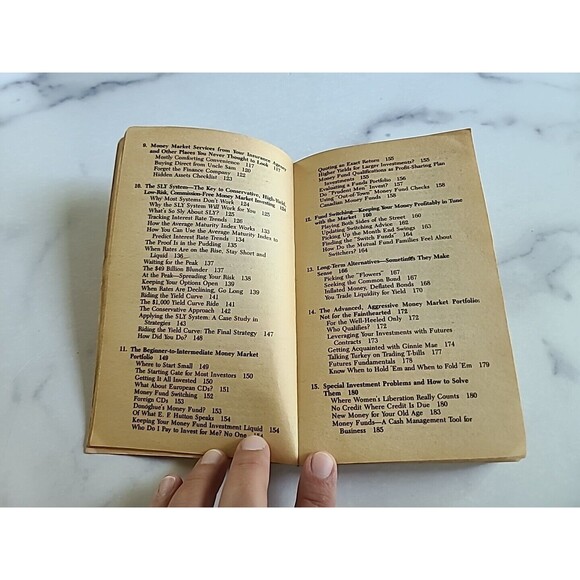 9. Money Market Services from Your Insurance Agency
and Other Places You Never Thought to Look 117
Mostly Comforting Convenience 117
Buying Direct from Uncle Sam 120
Forget the Finance Company 123
Hidden Assets Checklist 123
10. The SLY System—The Key to Conservative, High-Yield,
Low-Risk, Commission-Free Money Market Investing 124
Why Most Systems Don't Work 124
Why the SLY System Will Work for You 125
What's So Sly About SLY? 125
Tracking Interest Rate Trends 126
How the Average Maturity Index Works 133
How You Can Use the Average Maturity Index to
Predict Interest Rate Trends 134
The Proof Is in the Pudding 135
When Rates Are on the Rise, Stay Short and
Liquid 136
Waiting for the Peak 137
The $49 Billion Blunder 137
At the Peak—Spreading Your Risk 138
Keeping Your Options Open 139
When Rates Are Declining, Go Long 139
Riding the Yield Curve 141
The $1,000 Yield Curve Ride 141
The Conservative Approach 142
Applying the SLY System: A Case Study in
Strategies 143
Riding the Yield Curve: The Final Strategy 147
How Did You Do? 148
11. The Beginner-to-Intermediate Money Market
Portfolio 149
Where to Start Small 149
The Starting Gate for Most Investors 150
Getting It All Invested 150
What About European CDs? 151
Money Fund Switching 152
Foreign CDs 153
Donoghue's Money Fund? 153
Of What E. F. Hutton Speaks 154
Keeping Your Money Fund Investment Liquid 154
Who Do I Pay to Invest for Me? No One 154
Quoting an Exact Return 155
Higher Yields for Larger Investments? 155
Money Fund Qualifications as Profit-Sharing Plan
Investments 155
Evaluating a Funds Portfolio 156
Do "Prudent Men" Invent?
Using "Out-of-Town" Money Fund Checks 158
Canadian Money Funds 158
12. Fund Switching—Keeping Your Money Profitably in Tune
with the Market 160
Playing Both Sides of the Street 160
Updating Switching Advice 162
Picking Up the Month End Swings 164
Finding the "Switch Funds" 164
How Do the Mutual Fund Families Feel About
Switchers? 164
13. Long-Term Alternatives—Sometimes They Make
Sense 166
Picking the "Flowers" 167
Seeking the Common Bond 167
Inflated Money, Deflated Bonds 168
You Trade Liquidity for Yield 170
14. The Advanced, Aggressive Money Market Portfolio:
Not for the Fainthearted 172
For the Well-Heeled Only 172
Who Qualifies? 172
Leveraging Your Investments with Futures
Contracts 173
Getting Acquainted with Ginnie Mae 173
Talking Turkey on Trading T-bills 177
Futures Fundamentals 178
Know When to Hold 'Em and When to Fold 'Em 179
15. Special Investment Problems and How to Solve
Them 180
Where Women's Liberation Really Counts 180
No Credit Where Credit Is Due 180
New Money for Your Old Age 183
Money Funds—A Cash Management Tool for
Business 185